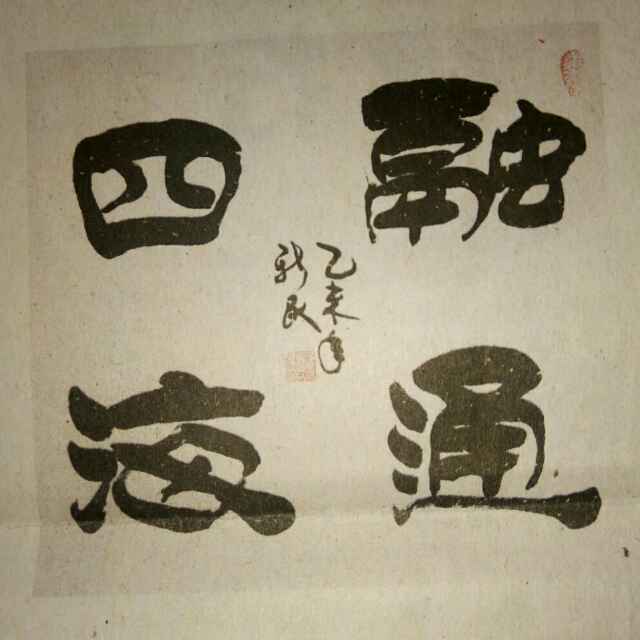 融通
四海
乙未年
新民